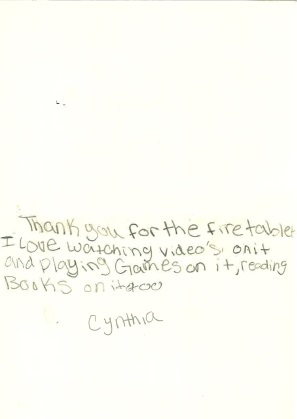 Thank you for the fire tablet
I Love watching video's on it
and playing Games on it, reading
Books on it too
Cynthia